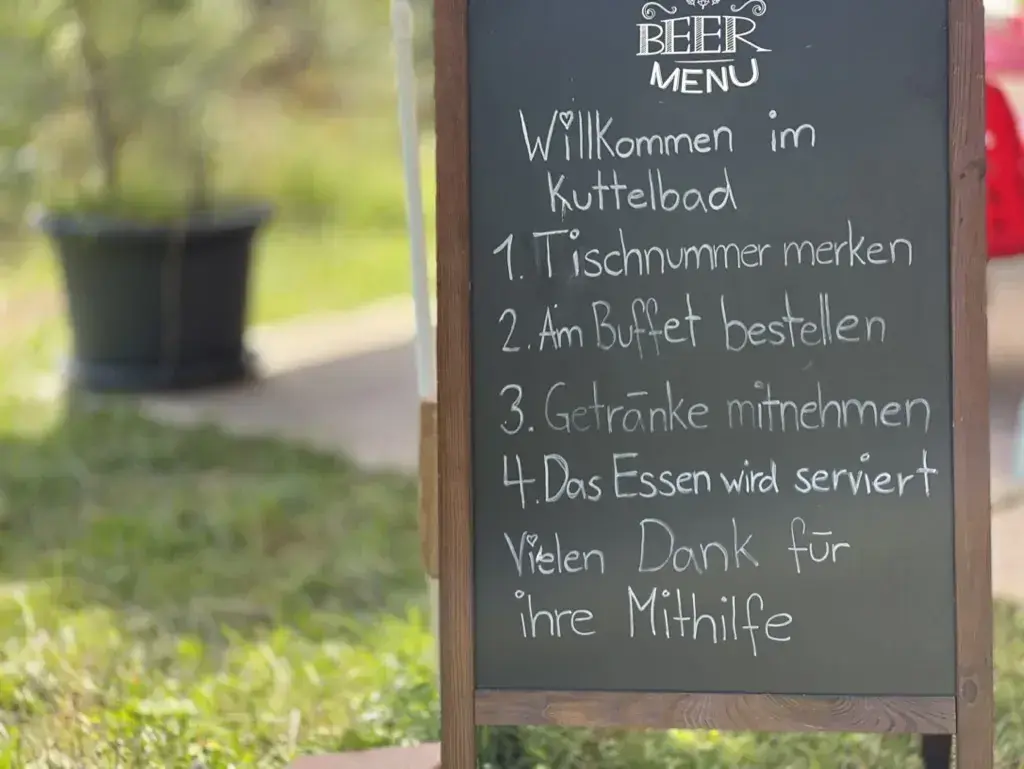 BEER
MENU
Willkommen im
Kuttelbad
1. Tischnummer merken
2. Am Buffet bestellen
3. Getränke mitnehmen
4. Das Essen wird serviert
Vielen Dank für
ihre Mithilfe